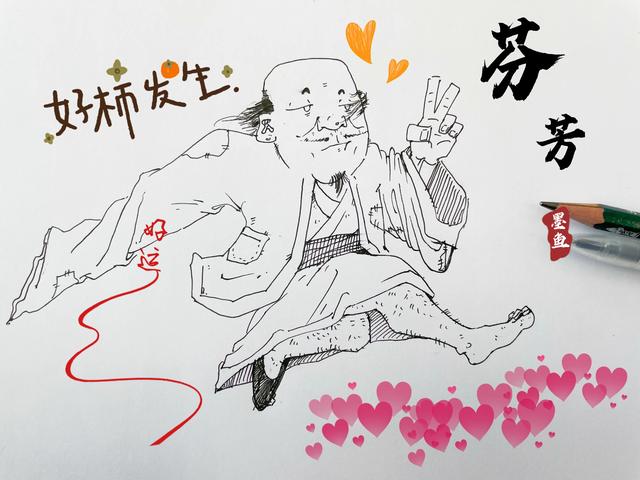 好柿发生.
芬
芳
好
运
墨
鱼